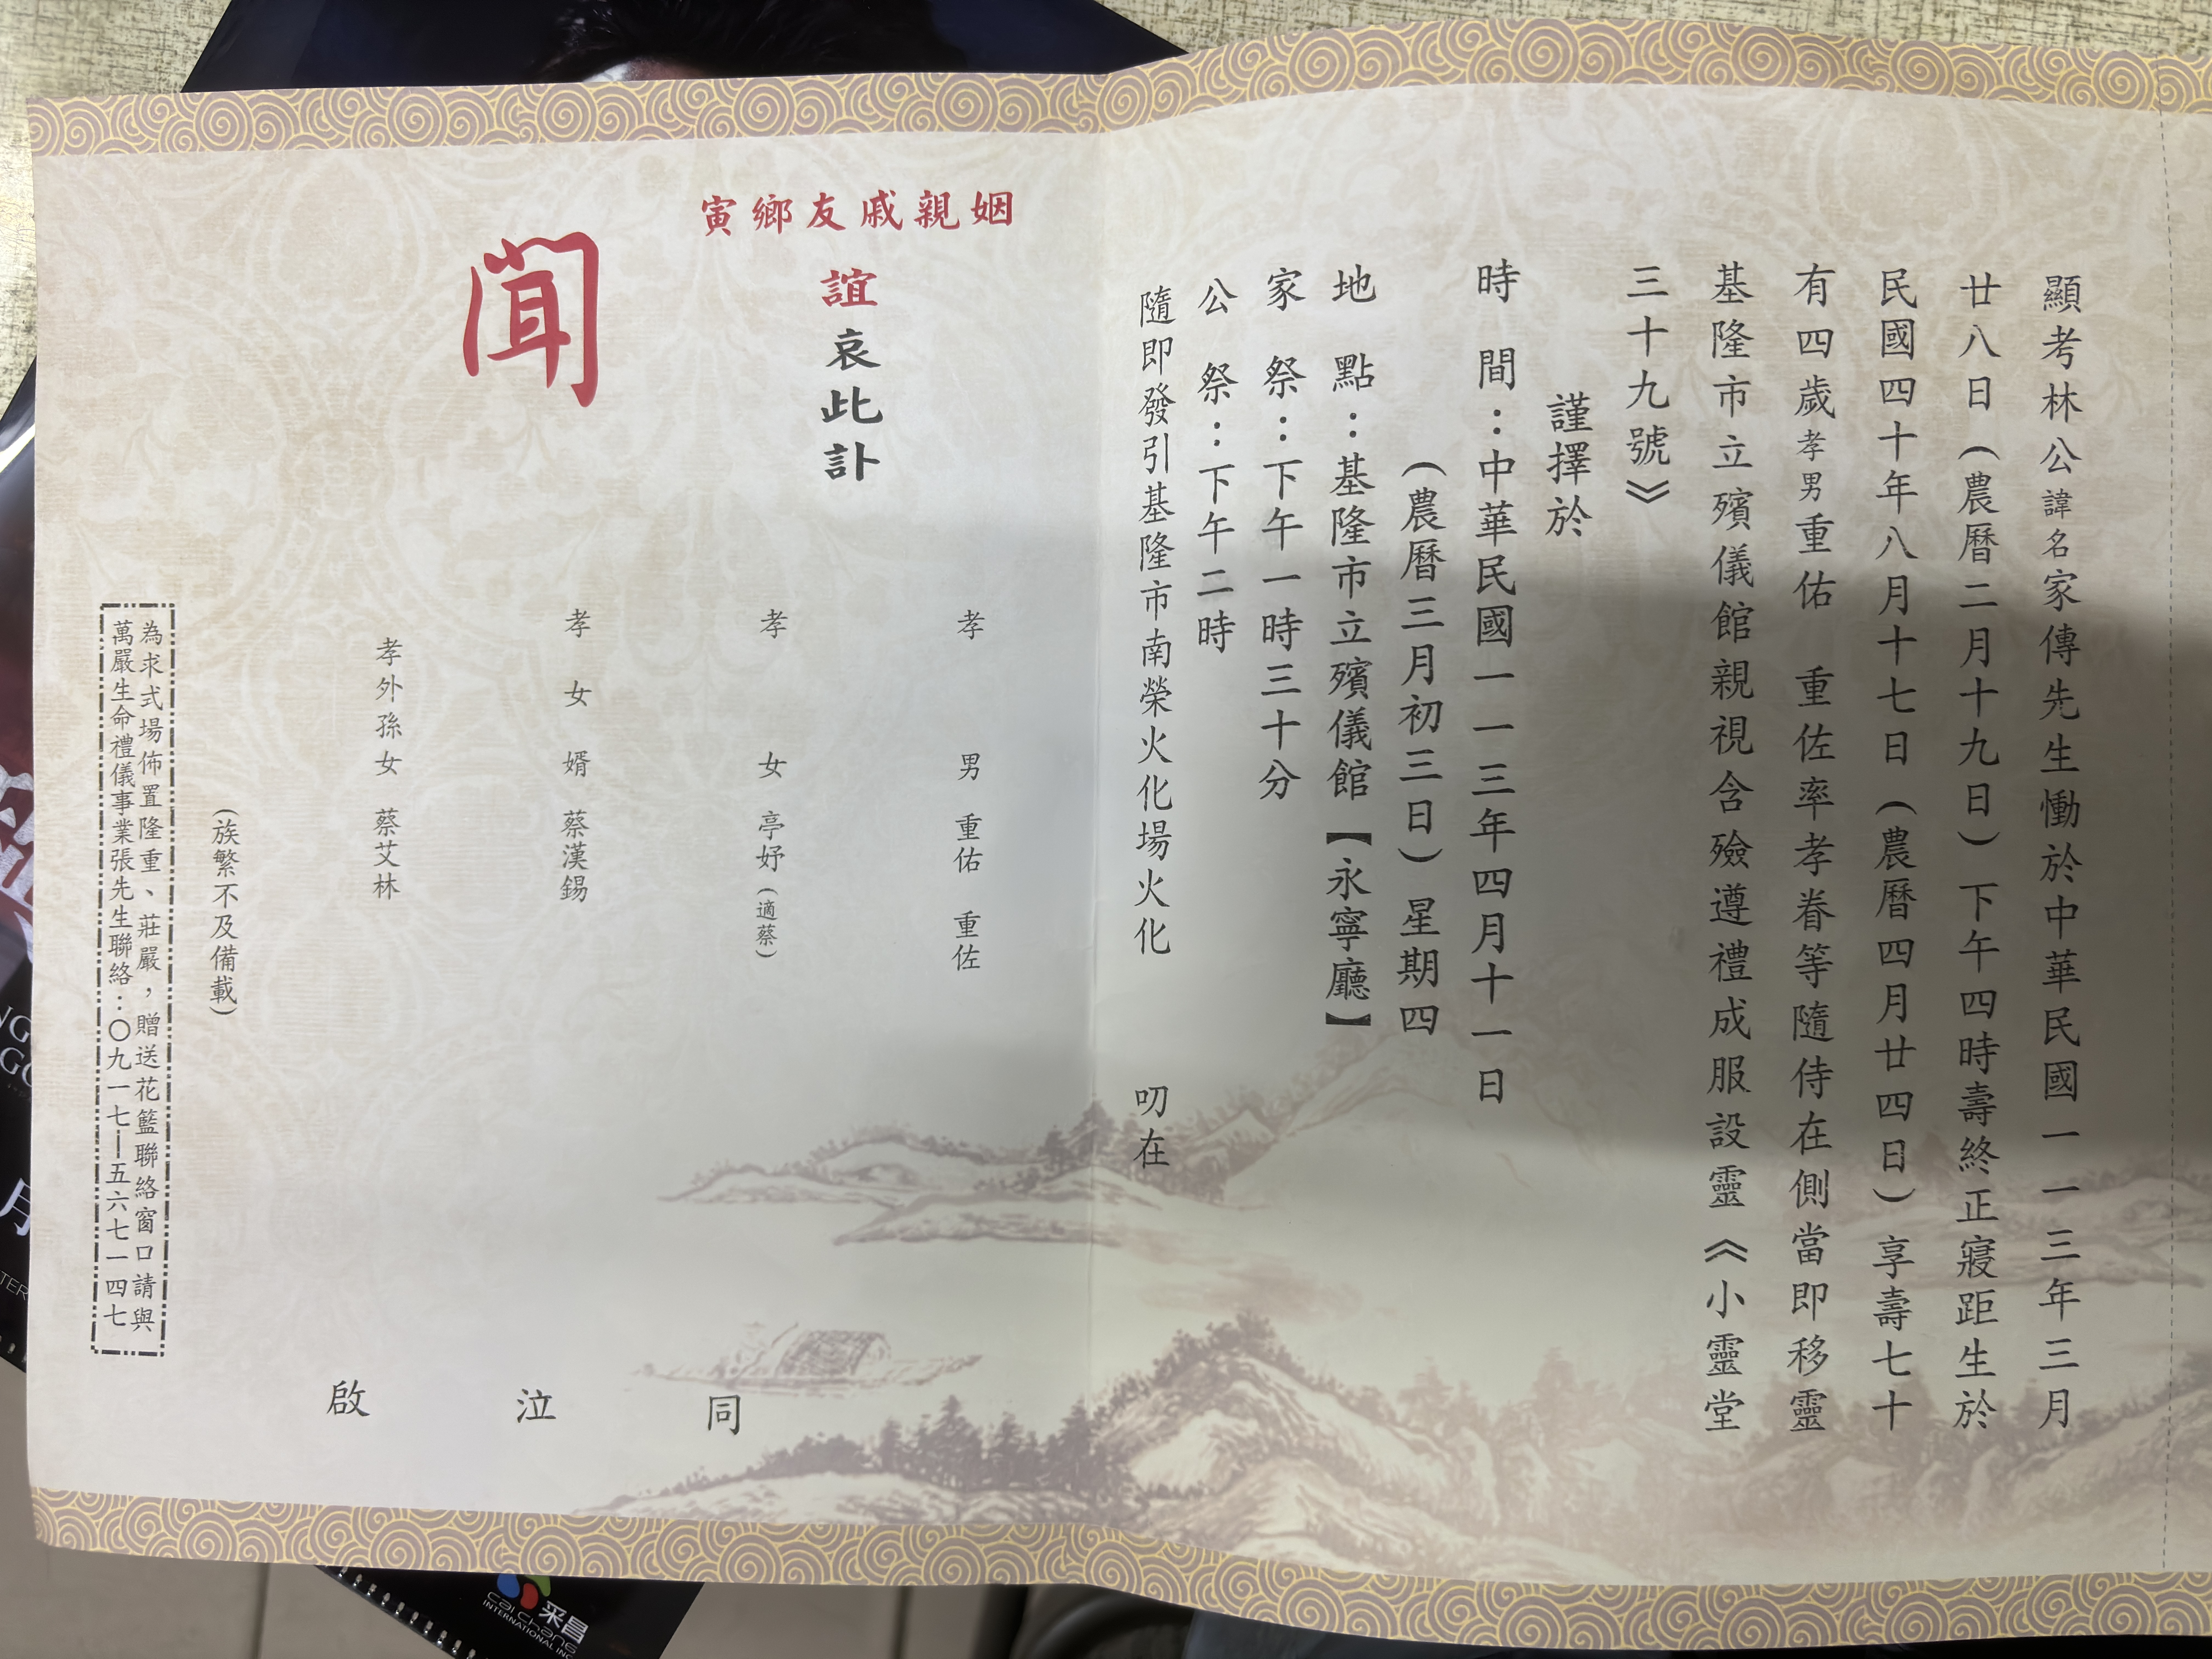 顯考林公諱名家傳先生慟於中華民國一一三年三月
廿八日(農曆二月十九日)下午四時壽終正寢距生於
民國四十年八月十七日(農曆四月廿四日)享壽七十
有四歲孝男重佑　重佐率孝眷等隨侍在側當即移靈
基隆市立殯儀館親視含殮遵禮成服設靈《小靈堂
三十九號》
謹擇於
時　間：中華民國一一三年四月十一日
(農曆三月初三日)星期四
地　點：基隆市立殯儀館【永寧廳】
家　祭：下午一時三十分
公　祭：下午二時
隨即發引基隆市南榮火化場火化　叨在
姻親戚友鄉寅
誼哀此訃
聞
孝　男　重佑　重佐
孝　女　亭妤(適蔡)
孝女婿　蔡漢錫
孝外孫女　蔡艾林
同　泣　啟
(族繁不及備載)
為求式場佈置隆重、莊嚴，贈送花籃聯絡窗口請與
萬嚴生命禮儀事業張先生聯絡：〇九一七—五六七一四七
月
采昌
cai chang
INTERNATIONAL INC